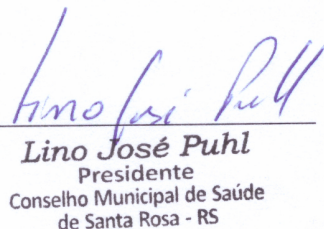 Lino José Puhl
Lino José Puhl
Presidente
Conselho Municipal de Saúde
de Santa Rosa - RS